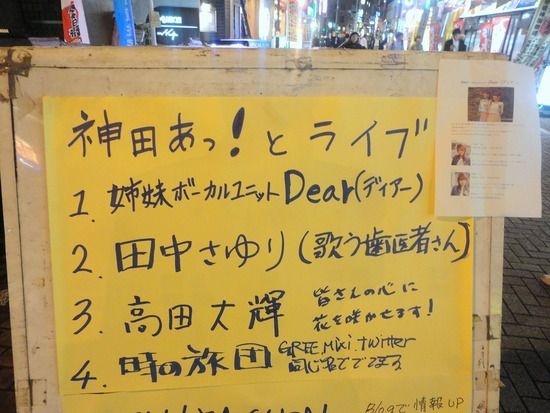 神田あっ!とライブ
1. 姉妹ボーカルユニットDear(ディアー)
2. 田中さゆり(歌う歯医者さん)
3. 高田大輝 皆さんの心に
花を咲かせます!
4. 時の旅団 GREE Mixi. twitter
同じ名ででてまる
で情報UP